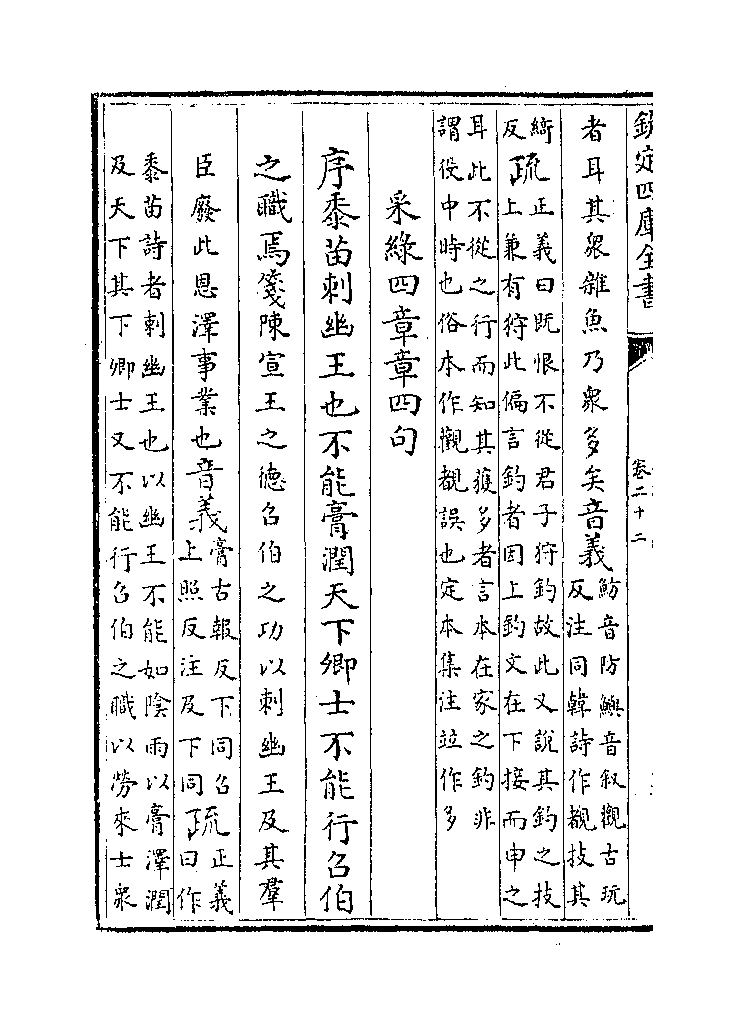 欽定四庫全書 卷二十二
者耳其衆雜魚乃衆多矣音義魴音防鱮音叙觀古玩
反注同韓詩作覩技其
綺
反疏正義曰既恨不從君子狩釣故此又說其釣之技
上兼有狩此偏言釣者因上釣文在下接而申之
耳此不從之行而知其獲多者言本在家之釣非
謂役中時也俗本作觀覩誤也定本集注竝作多
采綠四章章四句
序黍苗刺幽王也不能膏潤天下卿士不能行召伯
之職焉箋陳宣王之德召伯之功以刺幽王及其羣
臣廢此恩澤事業也音義膏古報反下同召
上照反注及下同疏正義
曰作
黍苗詩者刺幽王也以幽王不能如隂雨以膏澤潤
及天下其下卿士又不能行召伯之職以勞來士衆